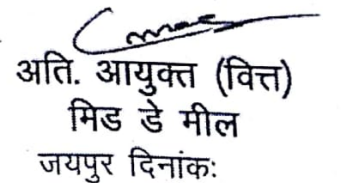 अति. आयुक्त (वित्त)
मिड डे मील
जयपुर दिनांक: